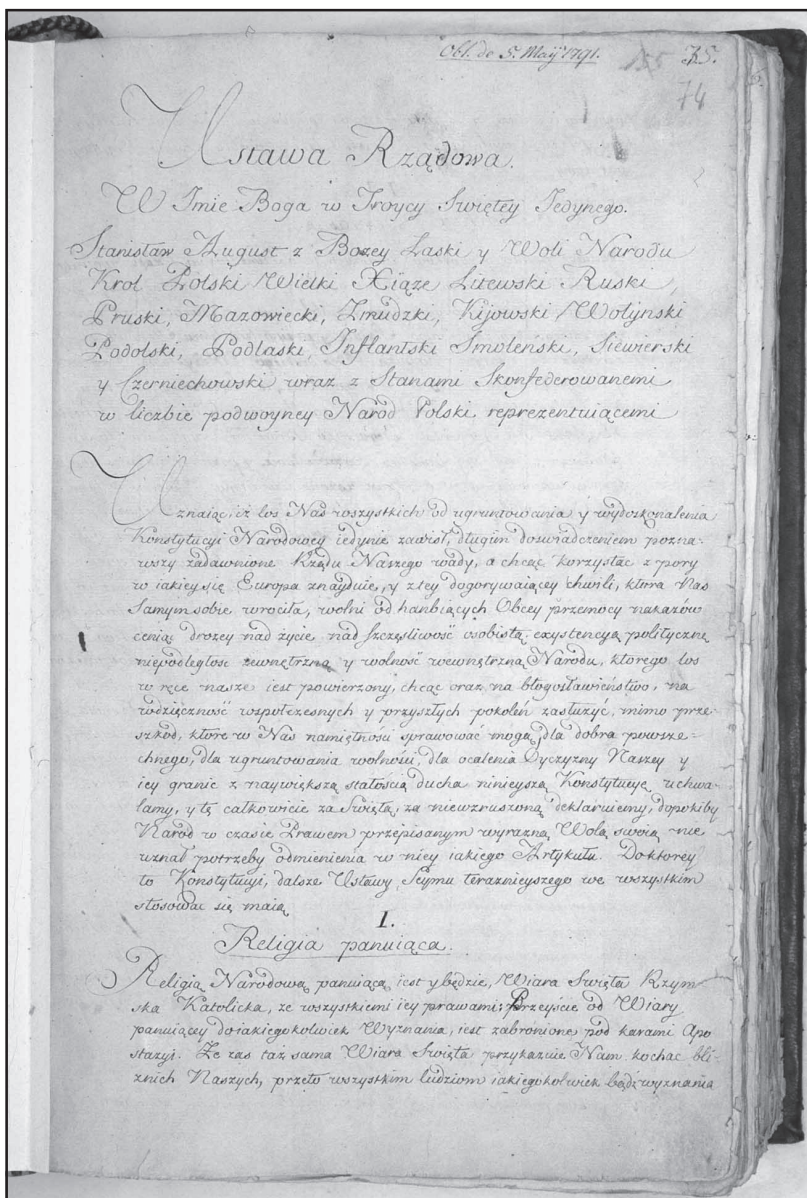 Obl. de 5. Maij 1791.
155 35.
74
Ustawa Rządowa.
W Imie Boga w Troycy Swiętey Jedynego.
Stanisław August z Bozey Łaski y Woli Narodu
Krol Polski Wielki Xiąze Litewski Ruski,
Pruski, Mazowiecki, Zmudzki, Kijowski Wołynski
Podolski, Podlaski, Inflantski Smoleński, Siewierski
y Czerniechowski wraz z Stanami Skonfederowanemi
w liczbie podwoyney Naród Polski reprezentuiącemi
Uznaiąc, iż los Nas wszystkich od ugruntowania y wydoskonalenia
Konstytucyi Narodowey iedynie zawisł, długim doświadczeniem pozna-
wszy zadawnione Rządu Naszego wady, a chcąc korzystac z pory
w iakiey się Europa znayduie, y z tey dogorywaiącey chwili, ktora Nas
Samym sobie wrociła, wolni od hanbiących Obcey przemocy nakazów
ceniąc drozey nad życie, nad szczęśliwość osobistą, exystencyą polityczną
niepodległosc zewnętrzną y wolność wewnętrzną Narodu, ktorego los
w ręce nasze iest powierzony, chcąc oraz na błogosławieństwo, na
wdzięczność wspołczesnych y przyszłych pokoleń zasłużyć, mimo prze-
szkod, które w Nas namiętności sprawować mogą, dla dobra powsze-
chnego, dla ugruntowania wolności, dla ocalenia Oyczyzny Naszey y
iey granic z naywiększą stałością ducha ninieyszą Konstytucyę uchwa-
lamy, y tę całkowicie za Swiętą, za niewzruszoną deklaruiemy, dopokiby
Naród w czasie Prawem przepisanym wyrazną Wolą swoią nie
uznał potrzeby odmienienia w niey iakiego Artykułu. Doktorey
to Konstytucyi, dalsze Ustawy Seymu teraznieyszego we wszystkim
stosować się maią
1.
Religia panuiąca.
Religią Narodową panuiącą iest y będzie, Wiara Swięta Rzym
ska Katolicka, ze wszystkiemi iey prawami; Przeyscie od Wiary
panuiącey do iakiegokolwiek Wyznania, iest zabronione pod karami Apo
stazyi. Ze zas taż sama Wiara Swięta przykazuie Nam kochac bli-
znich Naszych, przeto wszystkim ludziom iakiegokolwiek bądź wyznania